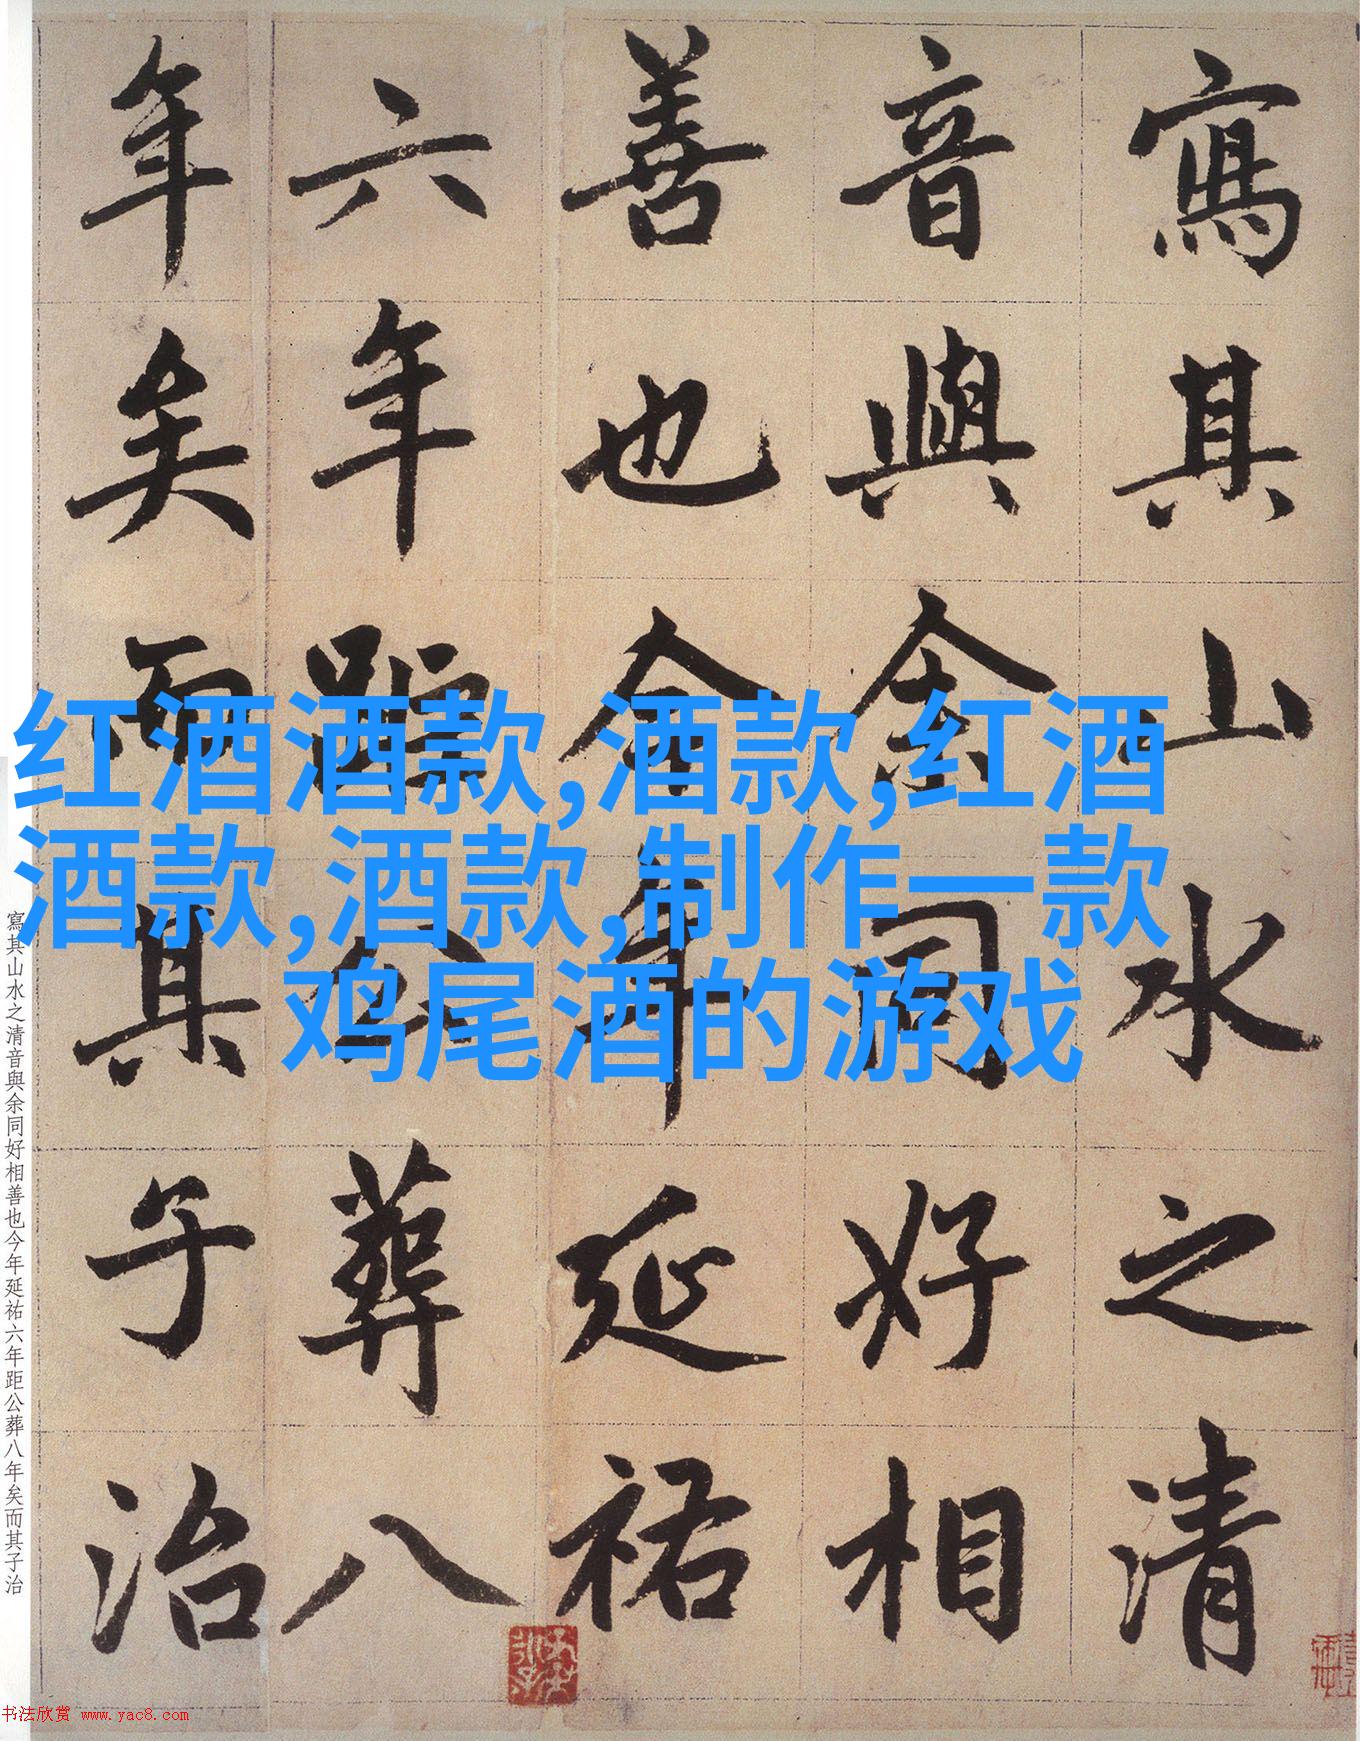 寫其山水之清
音與余同好相
善也今年延祐
六年距公葬八
年矣而其子治
红酒酒款,酒款,红酒
酒款,酒款,制作一款
鸡尾酒的游戏
寫其山水之清音與余同好相善也今年延祐六年距公葬八年矣而其子治
书法欣赏 www.yac8.com